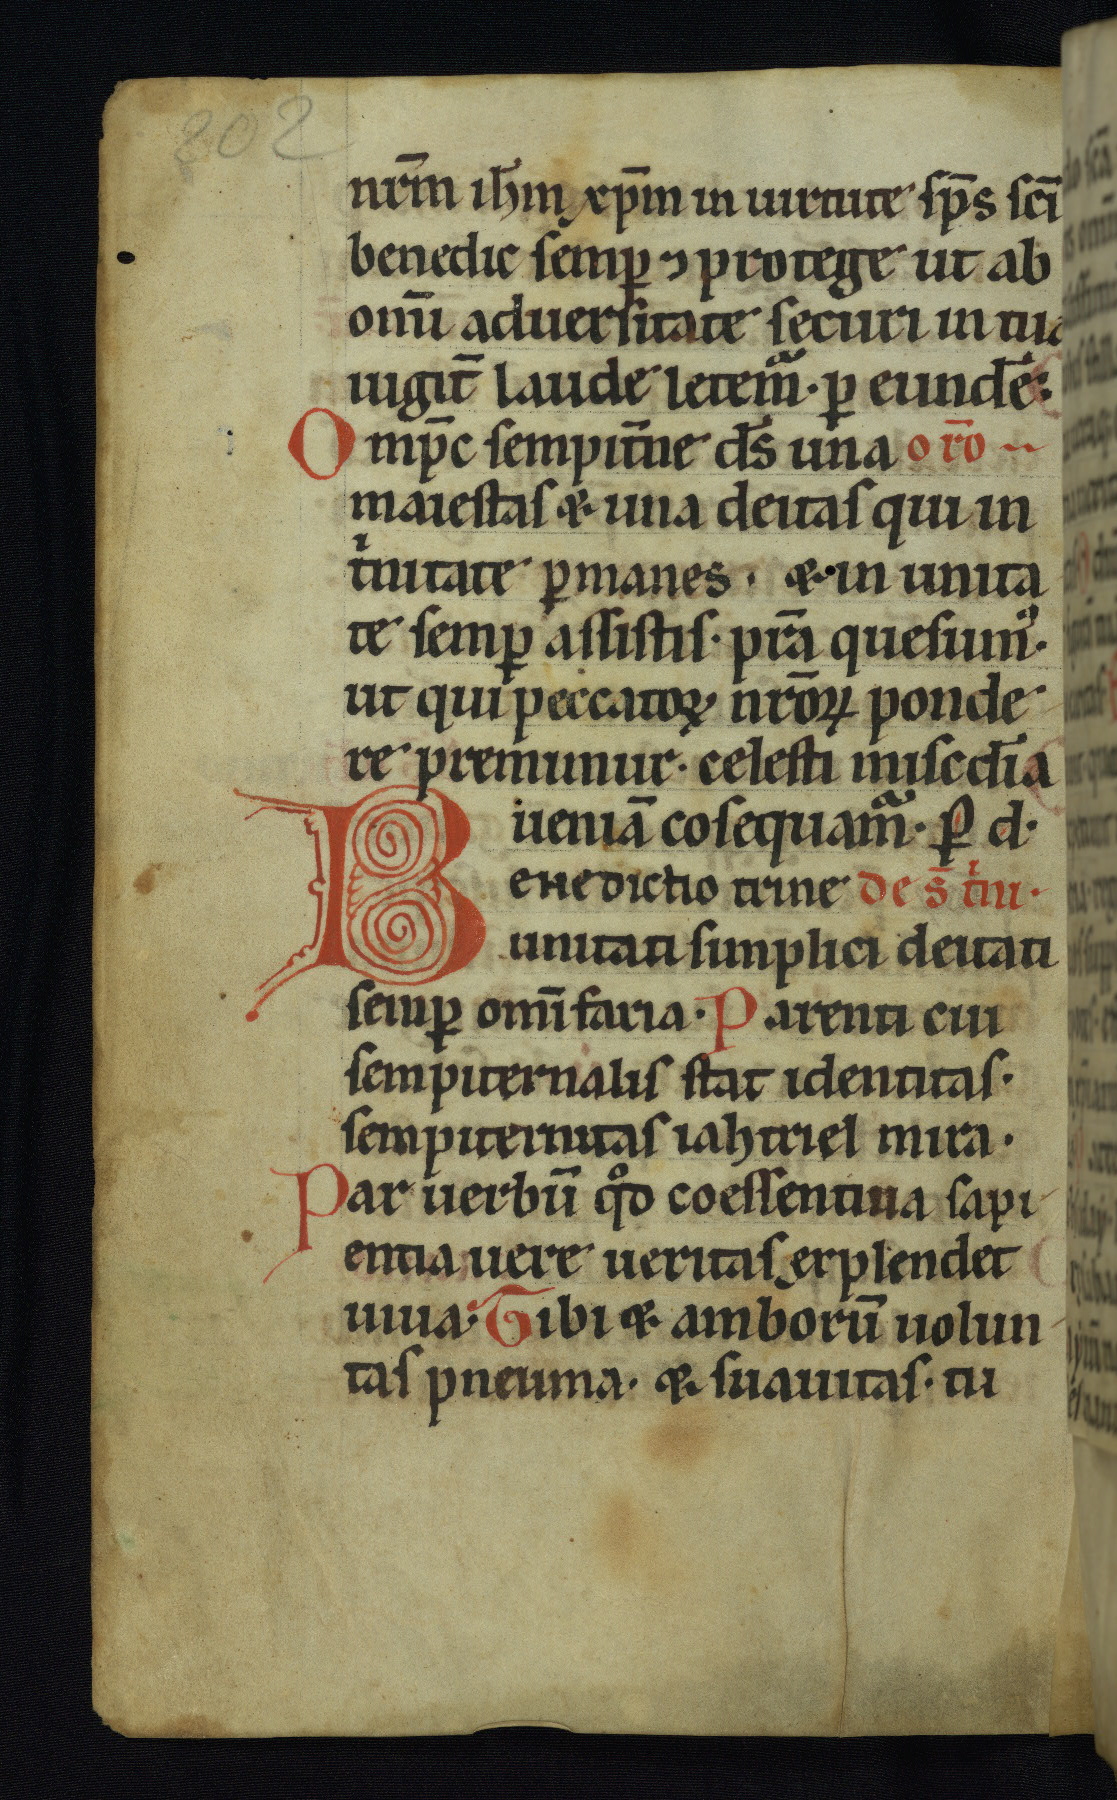 202
nr̄m ih̄m xp̄m in uirtute sp̄s sc̄i
benedic semꝑ ⁊ protege ut ab
om̄i aduersitate securi in tua
iugit̄ laude letem̄ᷓ· ꝑ eund̄e·
Omp̄c sempit̄ne d̄s una or̄o
maiestas & una deitas qui in
tⁱnitate ꝑmanes· & in unita
te semꝑ assistis· pr̄a quesumꝰ·
ut qui peccatoꝝ nr̄oꝝ ponde
re premimur· celesti misc̄dia
ueniā cōsequam̄ᷓ· ꝑ d·
Benedictio trine de s̄ tⁱni·
unitati simplici deitati
semꝑ om̄ifaria· Parenti cui
sempiternalis stat identitas·
sempiternitas iahtriel mira·
Par uerbū qͦd coessentiua sapi
entia uere ueritas exsplendet
uiua· Tibi & amborū uolun
tas pneuma· & suauitas· tu